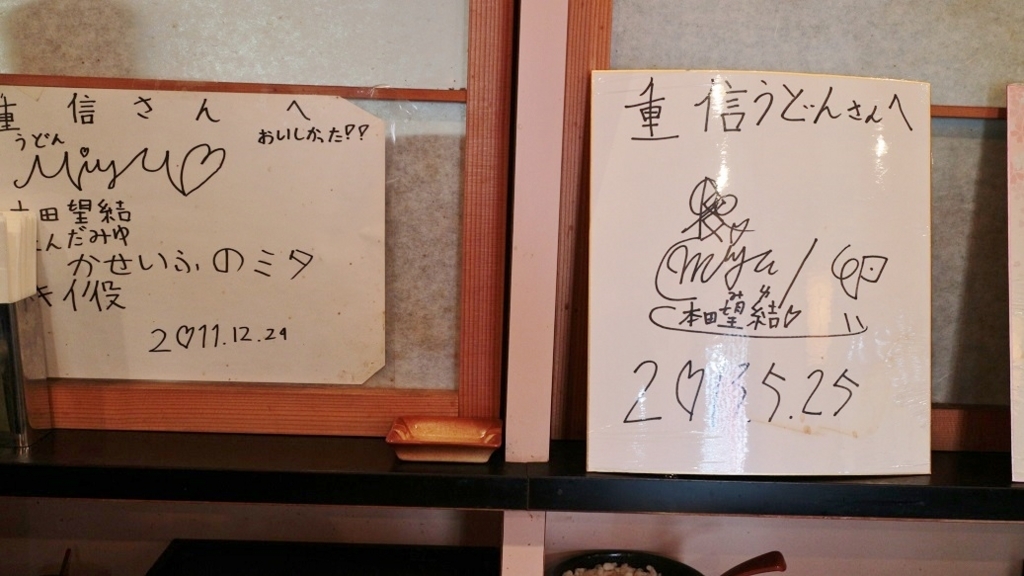 重信さんへ
うどん
おいしかった!!
Miyu♡
本田望結
ほんだみゆ
かせいふのミタ
キイ役
2♡11.12.29
重信うどんさんへ
Miyu/
みゆ
本田望結♡
2♡13.5.25